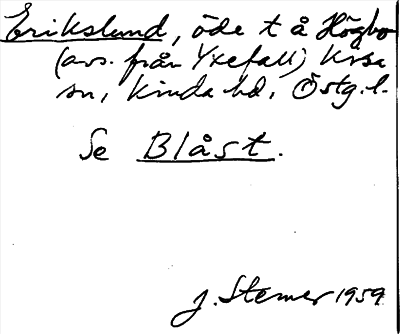 Erikslund, öde t å Högbo
(avs. från Yxefall) Krsa
sn, Kinda hd, Östg.l.
Se Blåst.
J. Sterner 1959